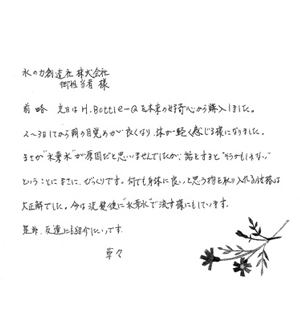 水の力創造社 株式会社
御担当者 様
前略 先日はH.Bottle-Qを本来の好奇心から購入しました。
2〜3日してから朝の目覚めが良くなり、体が軽く感じる様になりました。
まさか"水素水"が原因だと思いませんでしたが、
ということにまさに、びっくりです。何でも身体に良いと思う物を取り入れる
大正解でした。今は洗髪後に"水素水"で流す様にもしています。
是非、友達にも紹介したいです。
草々